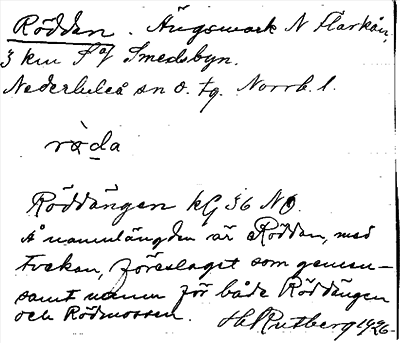 Rödden. Ängsmark N Flarkån,
3 km S of Smedsbyn.
Nederluleå sn o. tg. Norrb. l.
rò̀da
Röddängen kG 36 NO.
Å namnlängden är Röddan, med
tvekan, föreslaget som gemen-
samt namn för både Röddängen
och Rödmossen. H Rutberg 1926.